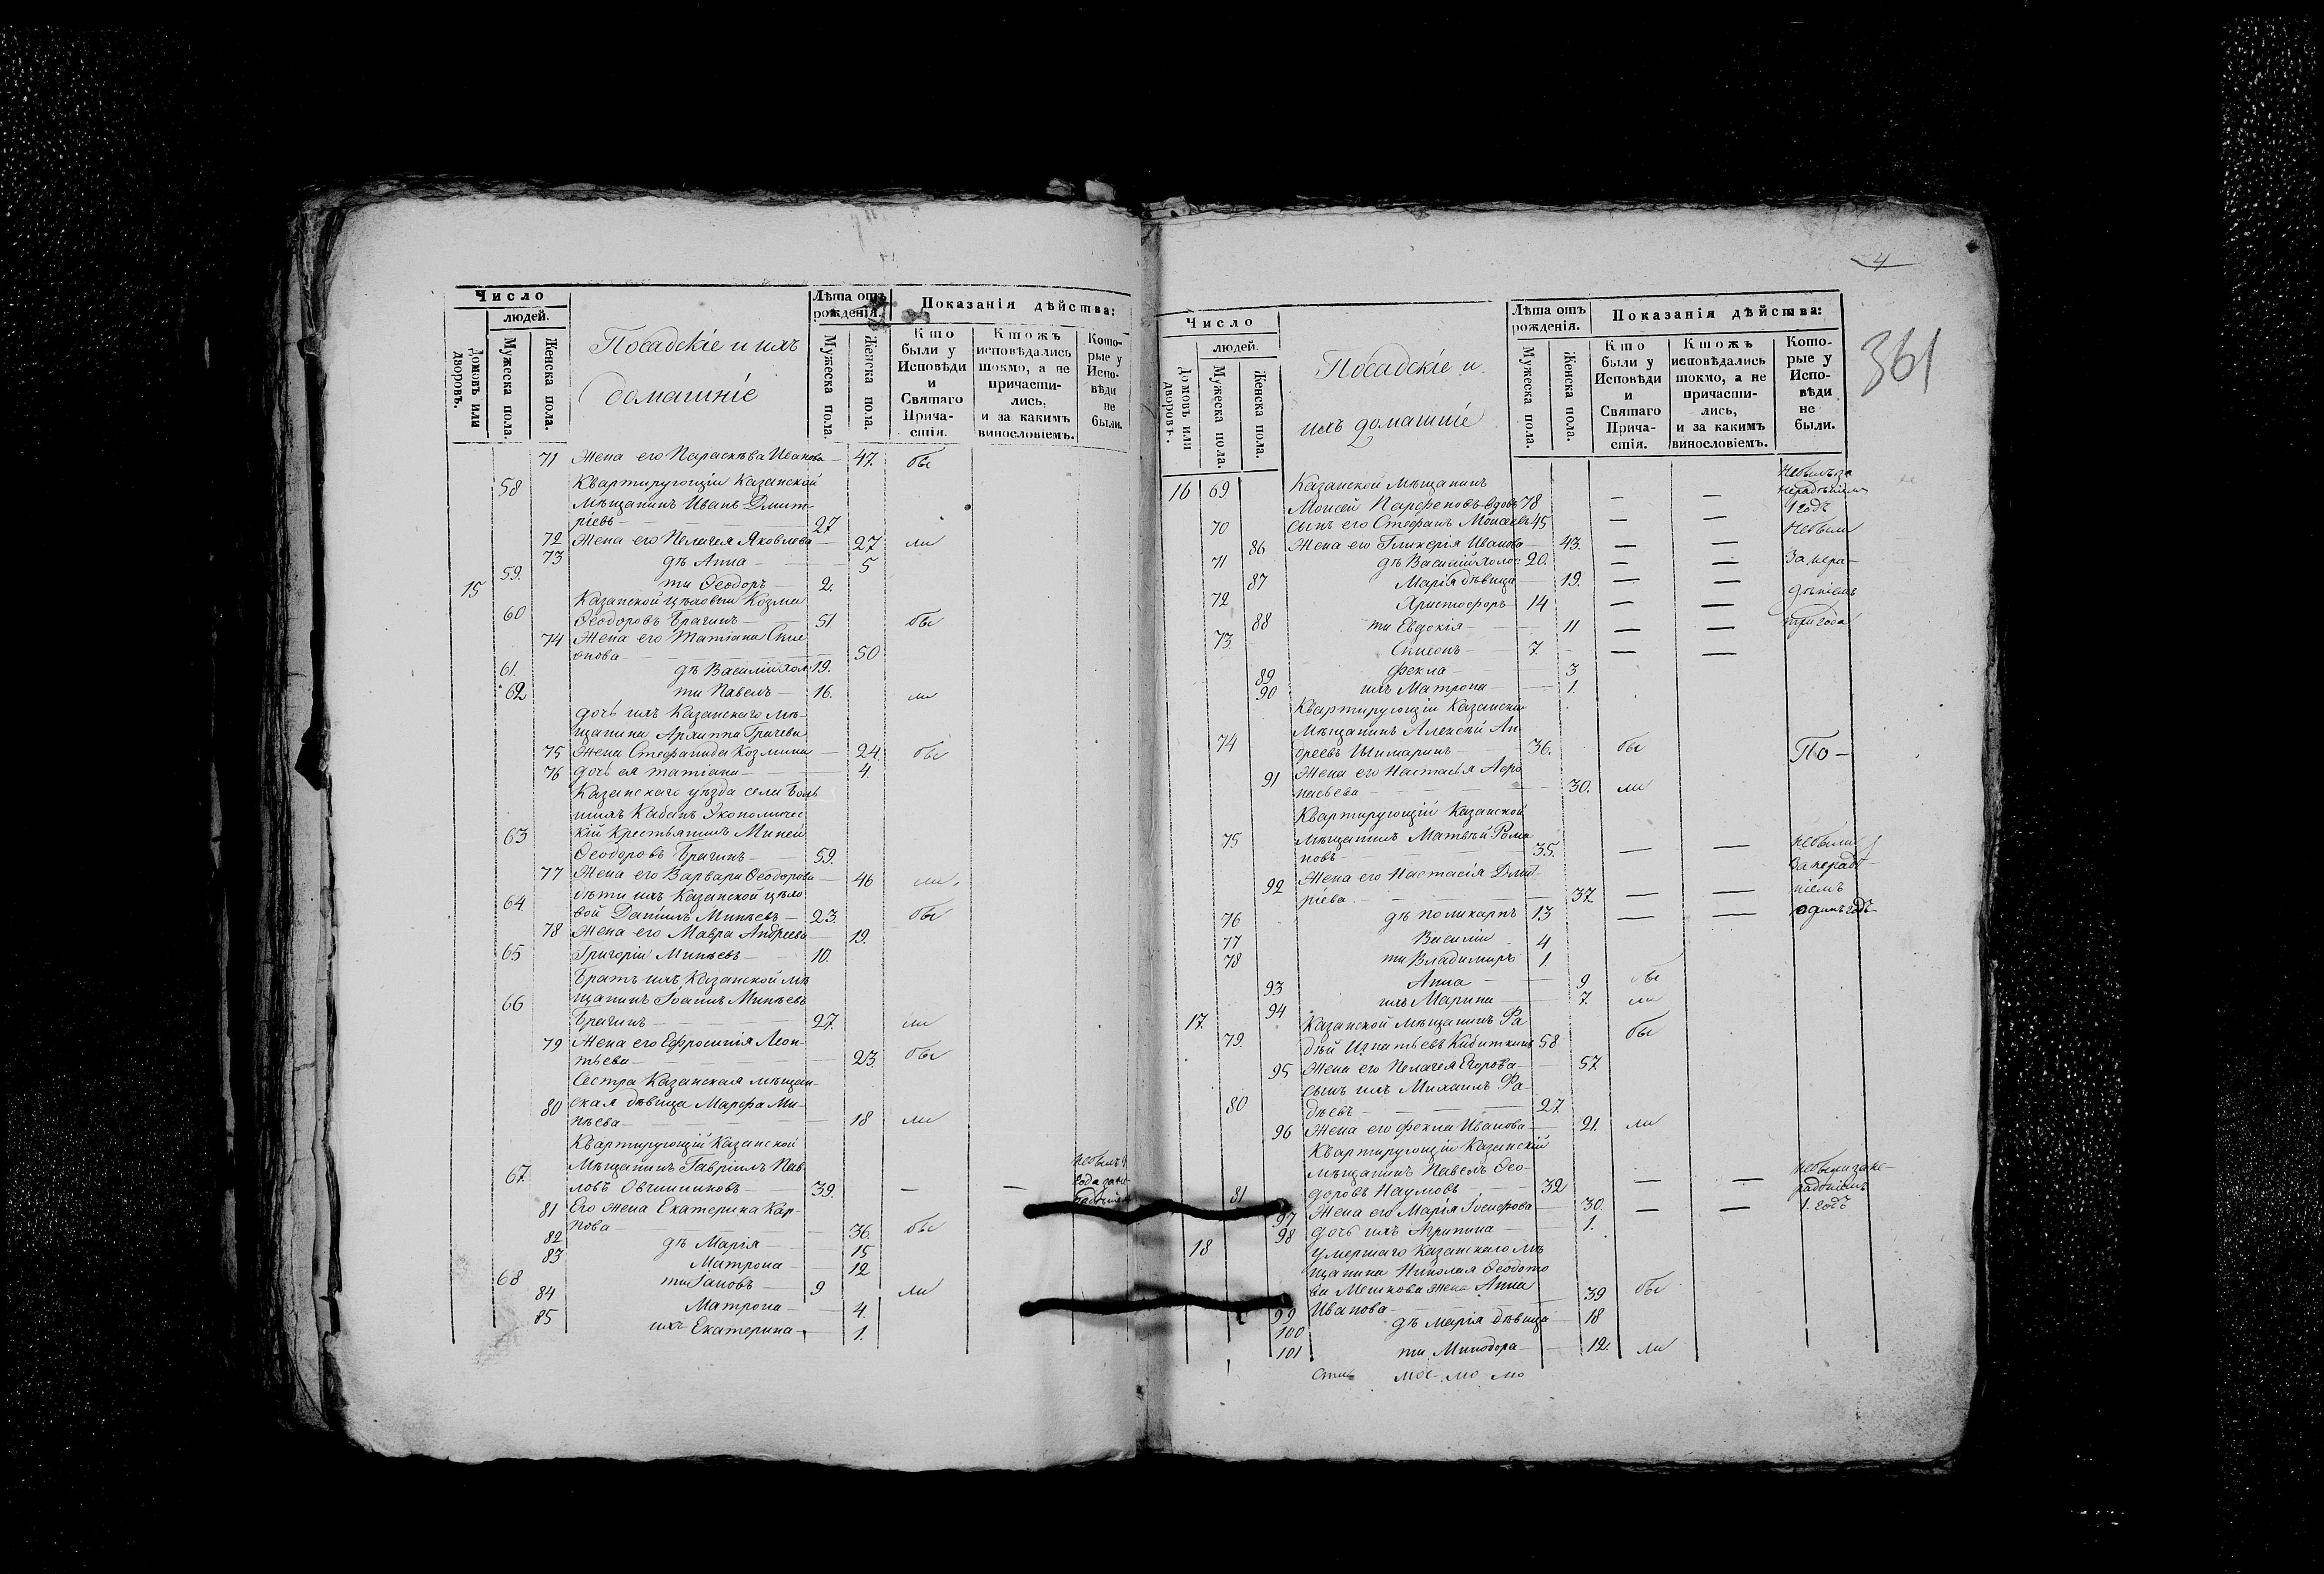 Число
людей.
Домовъ или дворовъ.
Мужеска пола.
Женска пола.
Посадскіе и ихъ
домашніе
Лѣта отъ
рожденія.
Мужеска пола.
Женска пола.
Показанія дѣйства:
Кто
были у
Исповѣди
и
Святаго
Прича-
стія.
Ктожъ
исповѣдались
токмо, а не
причасти-
лись,
и за какимъ
винословіемъ.
Кото-
рые у
Испо-
вѣди
не
были.
71 Жена его Параскѣва Иванова — 47. бы
58 Квартирующій Казанской
Мѣщанинъ Иванъ Дмит-
ріевъ — 27
72 Жена его Пелагея Яковлева — 27 ли
73 дѣ Анна — 5
59. ти Ѳеодоръ — 2.
15 Казанской цѣховый Козма
60 Ѳеодоровъ Брагинъ — 51 бы
74 Жена его Татіана Симе
онова — 50
61. дѣ Василій хол: 19.
62 ти Павелъ — 16. ли
дочь ихъ Казанскаго мѣ-
щанина Архиппа Грачева
75 Жена Стефанида Козмина — 24. бы
76 дочь ея Татіана — 4.
Казанскаго уѣзда села Боль
шихъ Кабанъ Экономичес
63 кій Крестьянинъ Миней
Ѳеодоровъ Брагинъ — 59.
77 Жена его Варвара Ѳеодорова — 46 ли.
дѣти ихъ Казанской цѣхо
64. вой Даніилъ Минѣевъ — 23. бы
78 Жена его Мавра Андреева — 19.
65 Григорій Минѣевъ — 10.
Братъ ихъ, Казанской мѣ
66 щанинъ Іоаннъ Минѣевъ
Брагинъ — 27. ли
79 Жена его Ефросинія Леон-
тьева — 23. бы
Сестра Казанская мѣщан-
80 ская дѣвица Марфа Ми-
нѣева — 18 ли
Квартирующій Казанской
67. Мѣщанинъ Гавріилъ Пав
ловъ Овчинниковъ — 39. — —
81 Его Жена Екатерина Кар-
пова — 36. бы
82 дѣ Марія — 15
83 Матрона — 12
68 ти Іаковъ — 9 ли
84 Матрона — 4.
85 ихъ Екатерина — 1.
4
361
Число
людей.
Домовъ или дворовъ.
Мужеска пола.
Женска пола.
Посадскіе и
ихъ домашніе
Лѣта отъ
рожденія.
Мужеска пола.
Женска пола.
Показанія дѣйства:
Кто
были у
Исповѣди
и
Святаго
Прича-
стія.
Ктожъ
исповѣдались
токмо, а не
причасти-
лись,
и за какимъ
винословіемъ.
Кото-
рые у
Испо-
вѣди
не
были.
16 69. Казанской Мѣщанинъ небылъ за
нерадѣніемъ
Моисей Парфеновъ вдовъ 78 — — 1 годъ
70 сынъ его Стефанъ Моисеевъ 45 — — Небыли
86 Жена его Гликерія Иванова — 43. — —
71 дѣ Василій холос: 20. — — За нера-
87 Марія дѣвица — 19. — —
72 Христофоръ — 14 — — дѣніемъ
88 ти Евдокія — 11 — — три года
73. Симеонъ — 7. — —
89 Фекла — 3
90 ихъ Матрона — 1.
Квартирующій Казанскій
Мѣщанинъ Алексѣй Ан
74 дреевъ Шимаринъ — 36. бы По-
91 Жена его Настасья Афо
насьева — 30. ли
Квартирующій Казанской
75 мѣщанинъ Матвѣй Рома
новъ — 35. — — небыли
92 Жена его Настасія Дмит- за нерадѣ-
ріева — 37 — — ніемъ
76 дѣ Поликарпъ 13 — — одинъ годъ
77 Василій 4
78 ти Владимиръ 1.
93 Анна — 9 бы
94 ихъ Марина — 7. ли
17. Казанской мѣщанинъ Фа
79. дѣй Игнатьевъ Кибиткинъ 58 бы
95 Жена его Пелагея Егорова — 57
сынъ ихъ Михаилъ Фа-
80 дѣевъ — 27
96 Жена его Фекла Иванова — 21. ли
Квартирующій Казанскій
мѣщанинъ Павелъ Ѳео-
81 доровъ Наумовъ — 32 — — небыли за не-
радѣніемъ
97 Жена его Марія Іосифова — 30. — — 1. годъ
98 дочь ихъ Агрипина — 1.
18 умершаго Казанскаго мѣ
щанина Николая Ѳеодото
ва Мешкова жена Анна
99 Иванова — 39 бы
100 дѣ Марія дѣвица — 18
101 ти Минодора — 12. ли